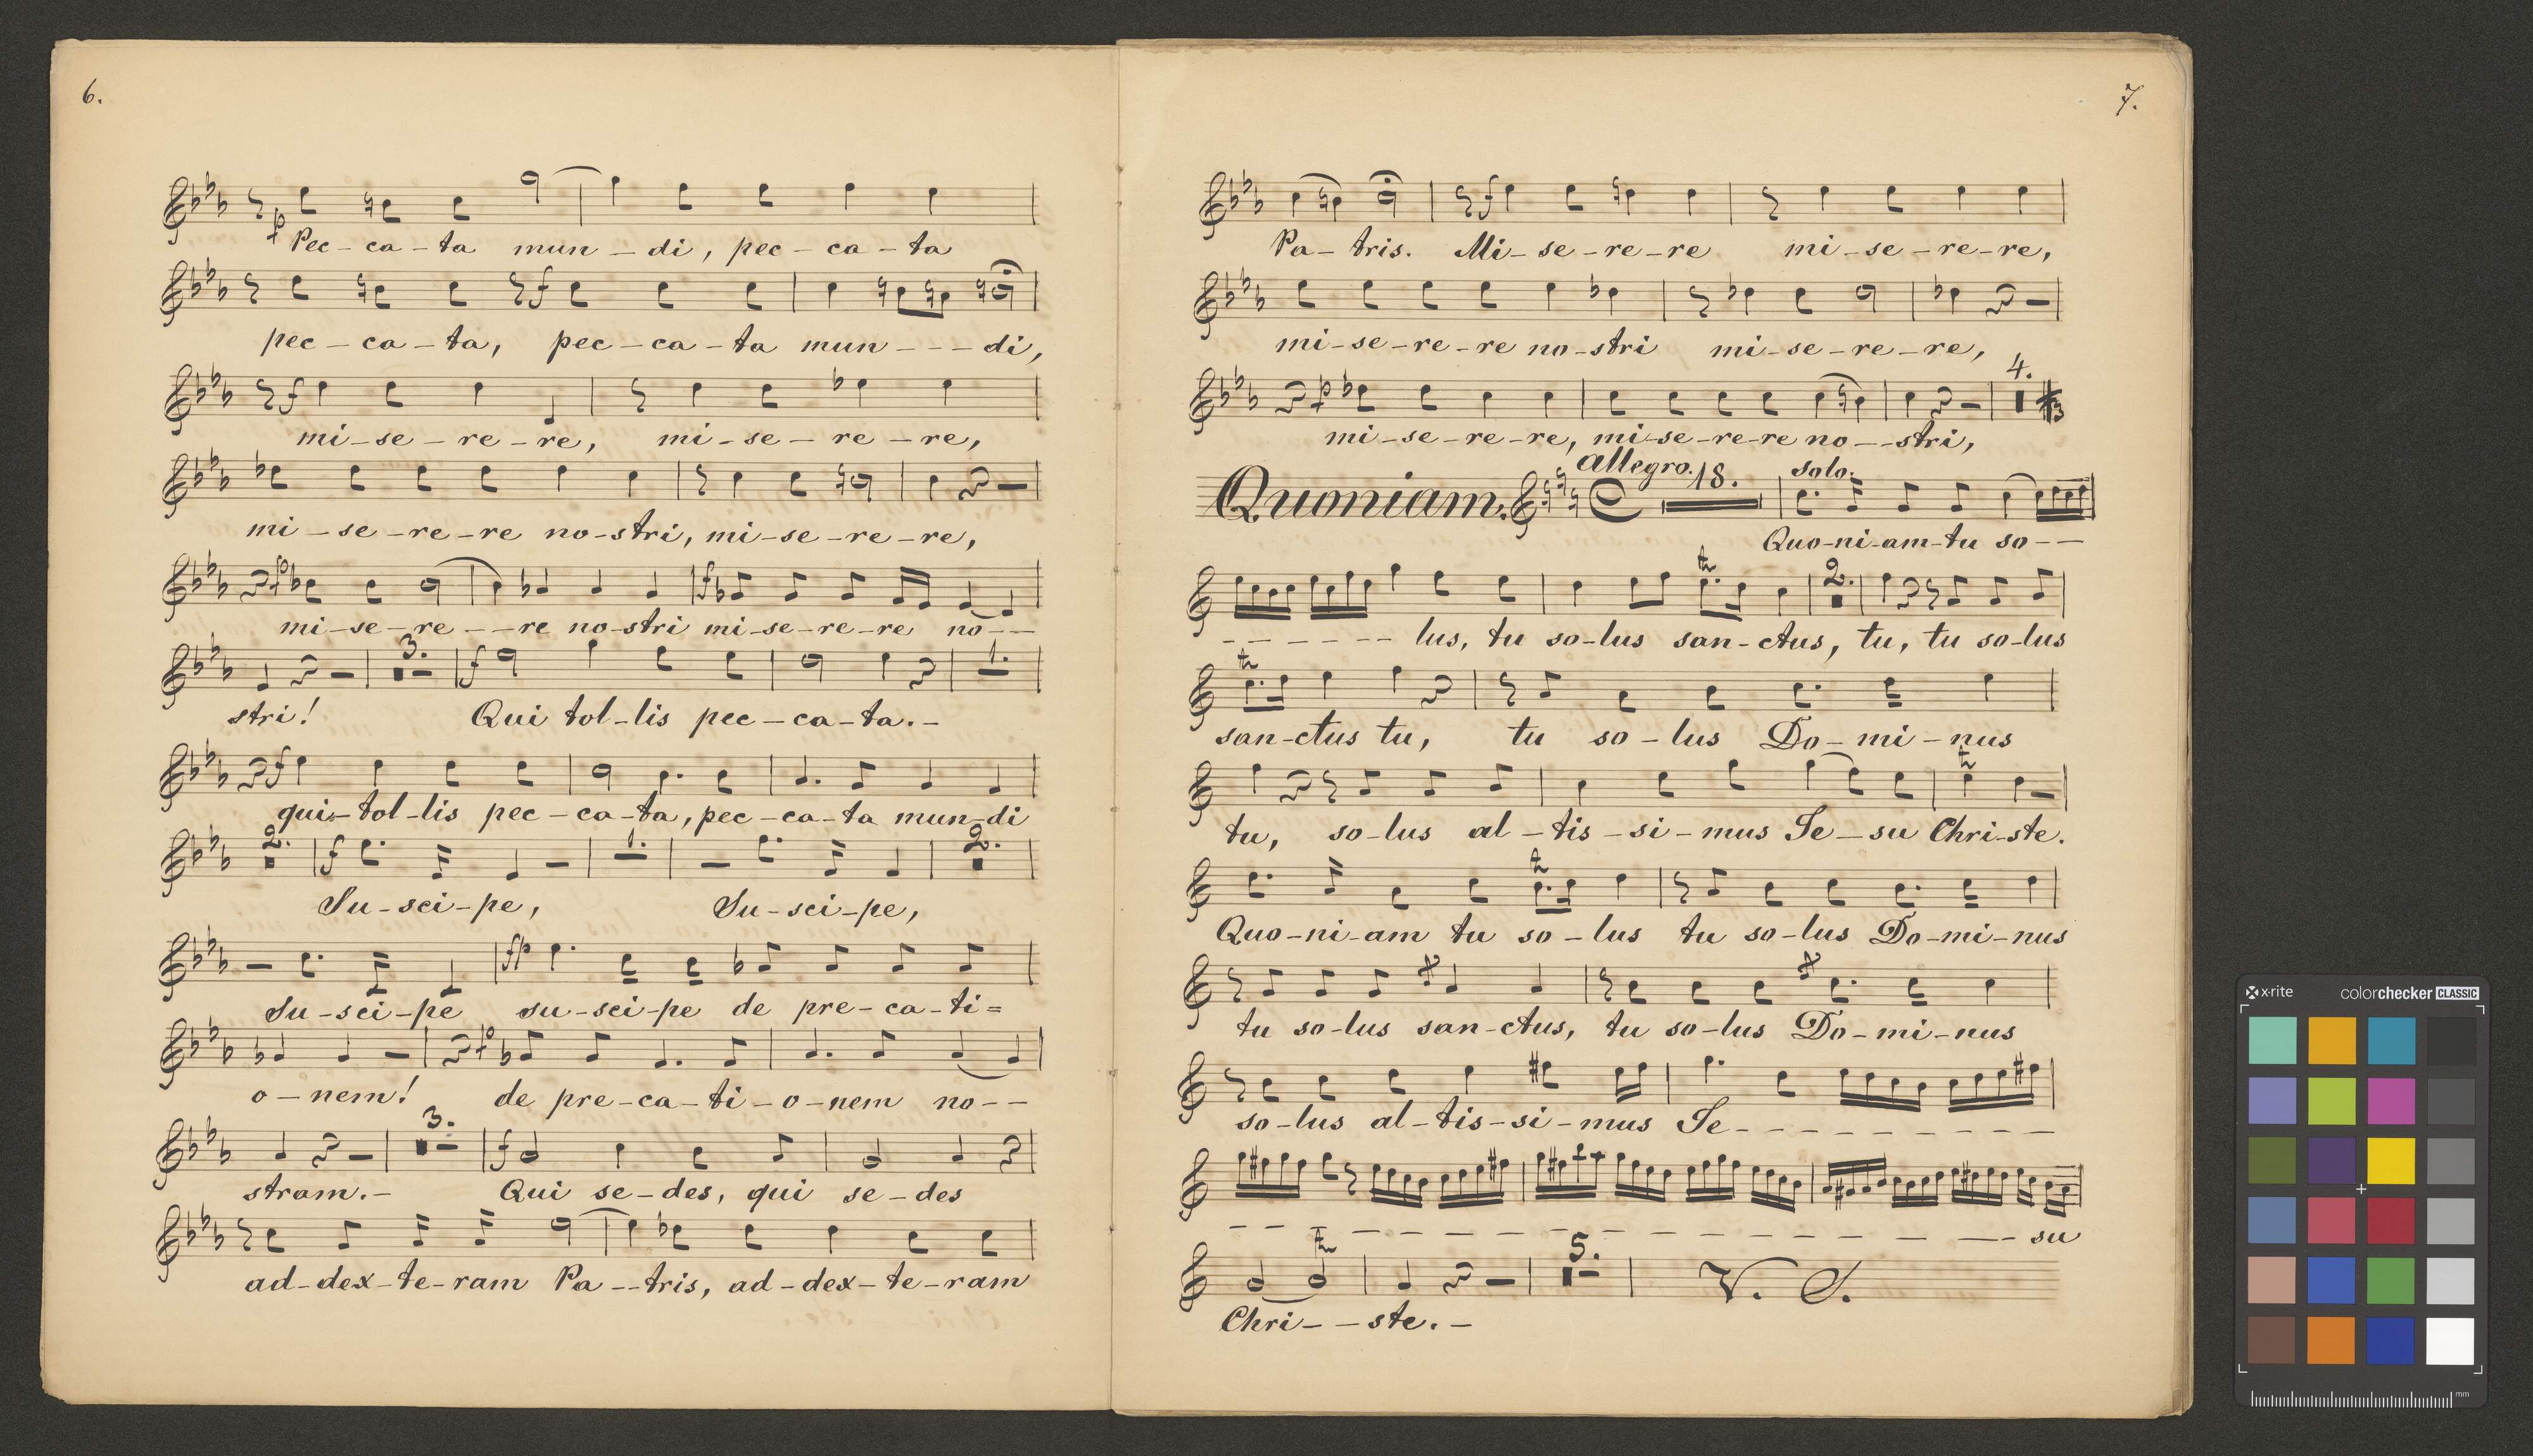 6.
Pec-ca-ta mun-di, pec-ca-ta
pec-ca-ta, pec-ca-ta mun---di,
mi-se-re-re, mi-se-re-re,
mi-se-re-re no-stri, mi-se-re-re,
mi-se-re--re no-stri mi-se-re-re no--
3. 1.
stri! Qui tol-lis pec-ca-ta.-
qui-tol-lis pec-ca-ta, pec-ca-ta mun-di
2. 1. 2.
Su-sci-pe, Su-sci-pe,
Su-sci-pe su-sci-pe de pre-ca-ti=
o-nem! de pre-ca-ti-o-nem no--
3.
stram.- Qui se-des, qui se-des
ad-dex-te-ram Pa--tris, ad-dex-te-ram
7.
Pa-tris. Mi-se-re-re mi-se-re-re,
mi-se-re-re no-stri mi-se-re-re,
4.
mi-se-re-re, mi-se-re-re no--stri,
Quoniam. allegro. 18. solo.
Quo-ni-am-tu so--
2.
------ lus, tu so-lus san-ctus, tu, tu so-lus
san-ctus tu, tu so-lus Do-mi-nus
tu, so-lus al-tis-si-mus Je-su Chri-ste.
Quo-ni-am tu so-lus tu so-lus Do-mi-nus
tu so-lus san-ctus, tu so-lus Do-mi-nus
so-lus al-tis-si-mus Je--------
------------- su
5. V. S.
Chri--ste.-
x-rite colorchecker CLASSIC
mm